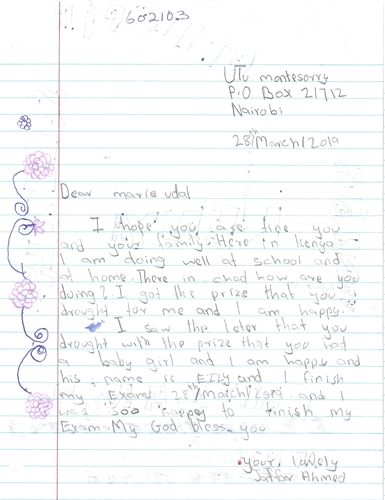 602103
Utu montesorry
P.O Box 21712
Nairobi
28th/March/2019
Dear marie udal
I hope you are fine you
and your family. Here in kenya
I am doing well at school and
at home. There in chad how are you
doing? I got the prize that you
drought for me and I am happy.
I saw the leter that you
drought with the prize that you had
a baby girl and I am happy and
his name is and I finish
my Exams 28th/March/2019 and I
was soo happy to finish my
Exam. My God bless you.
your lovely
Jaffar Ahmed